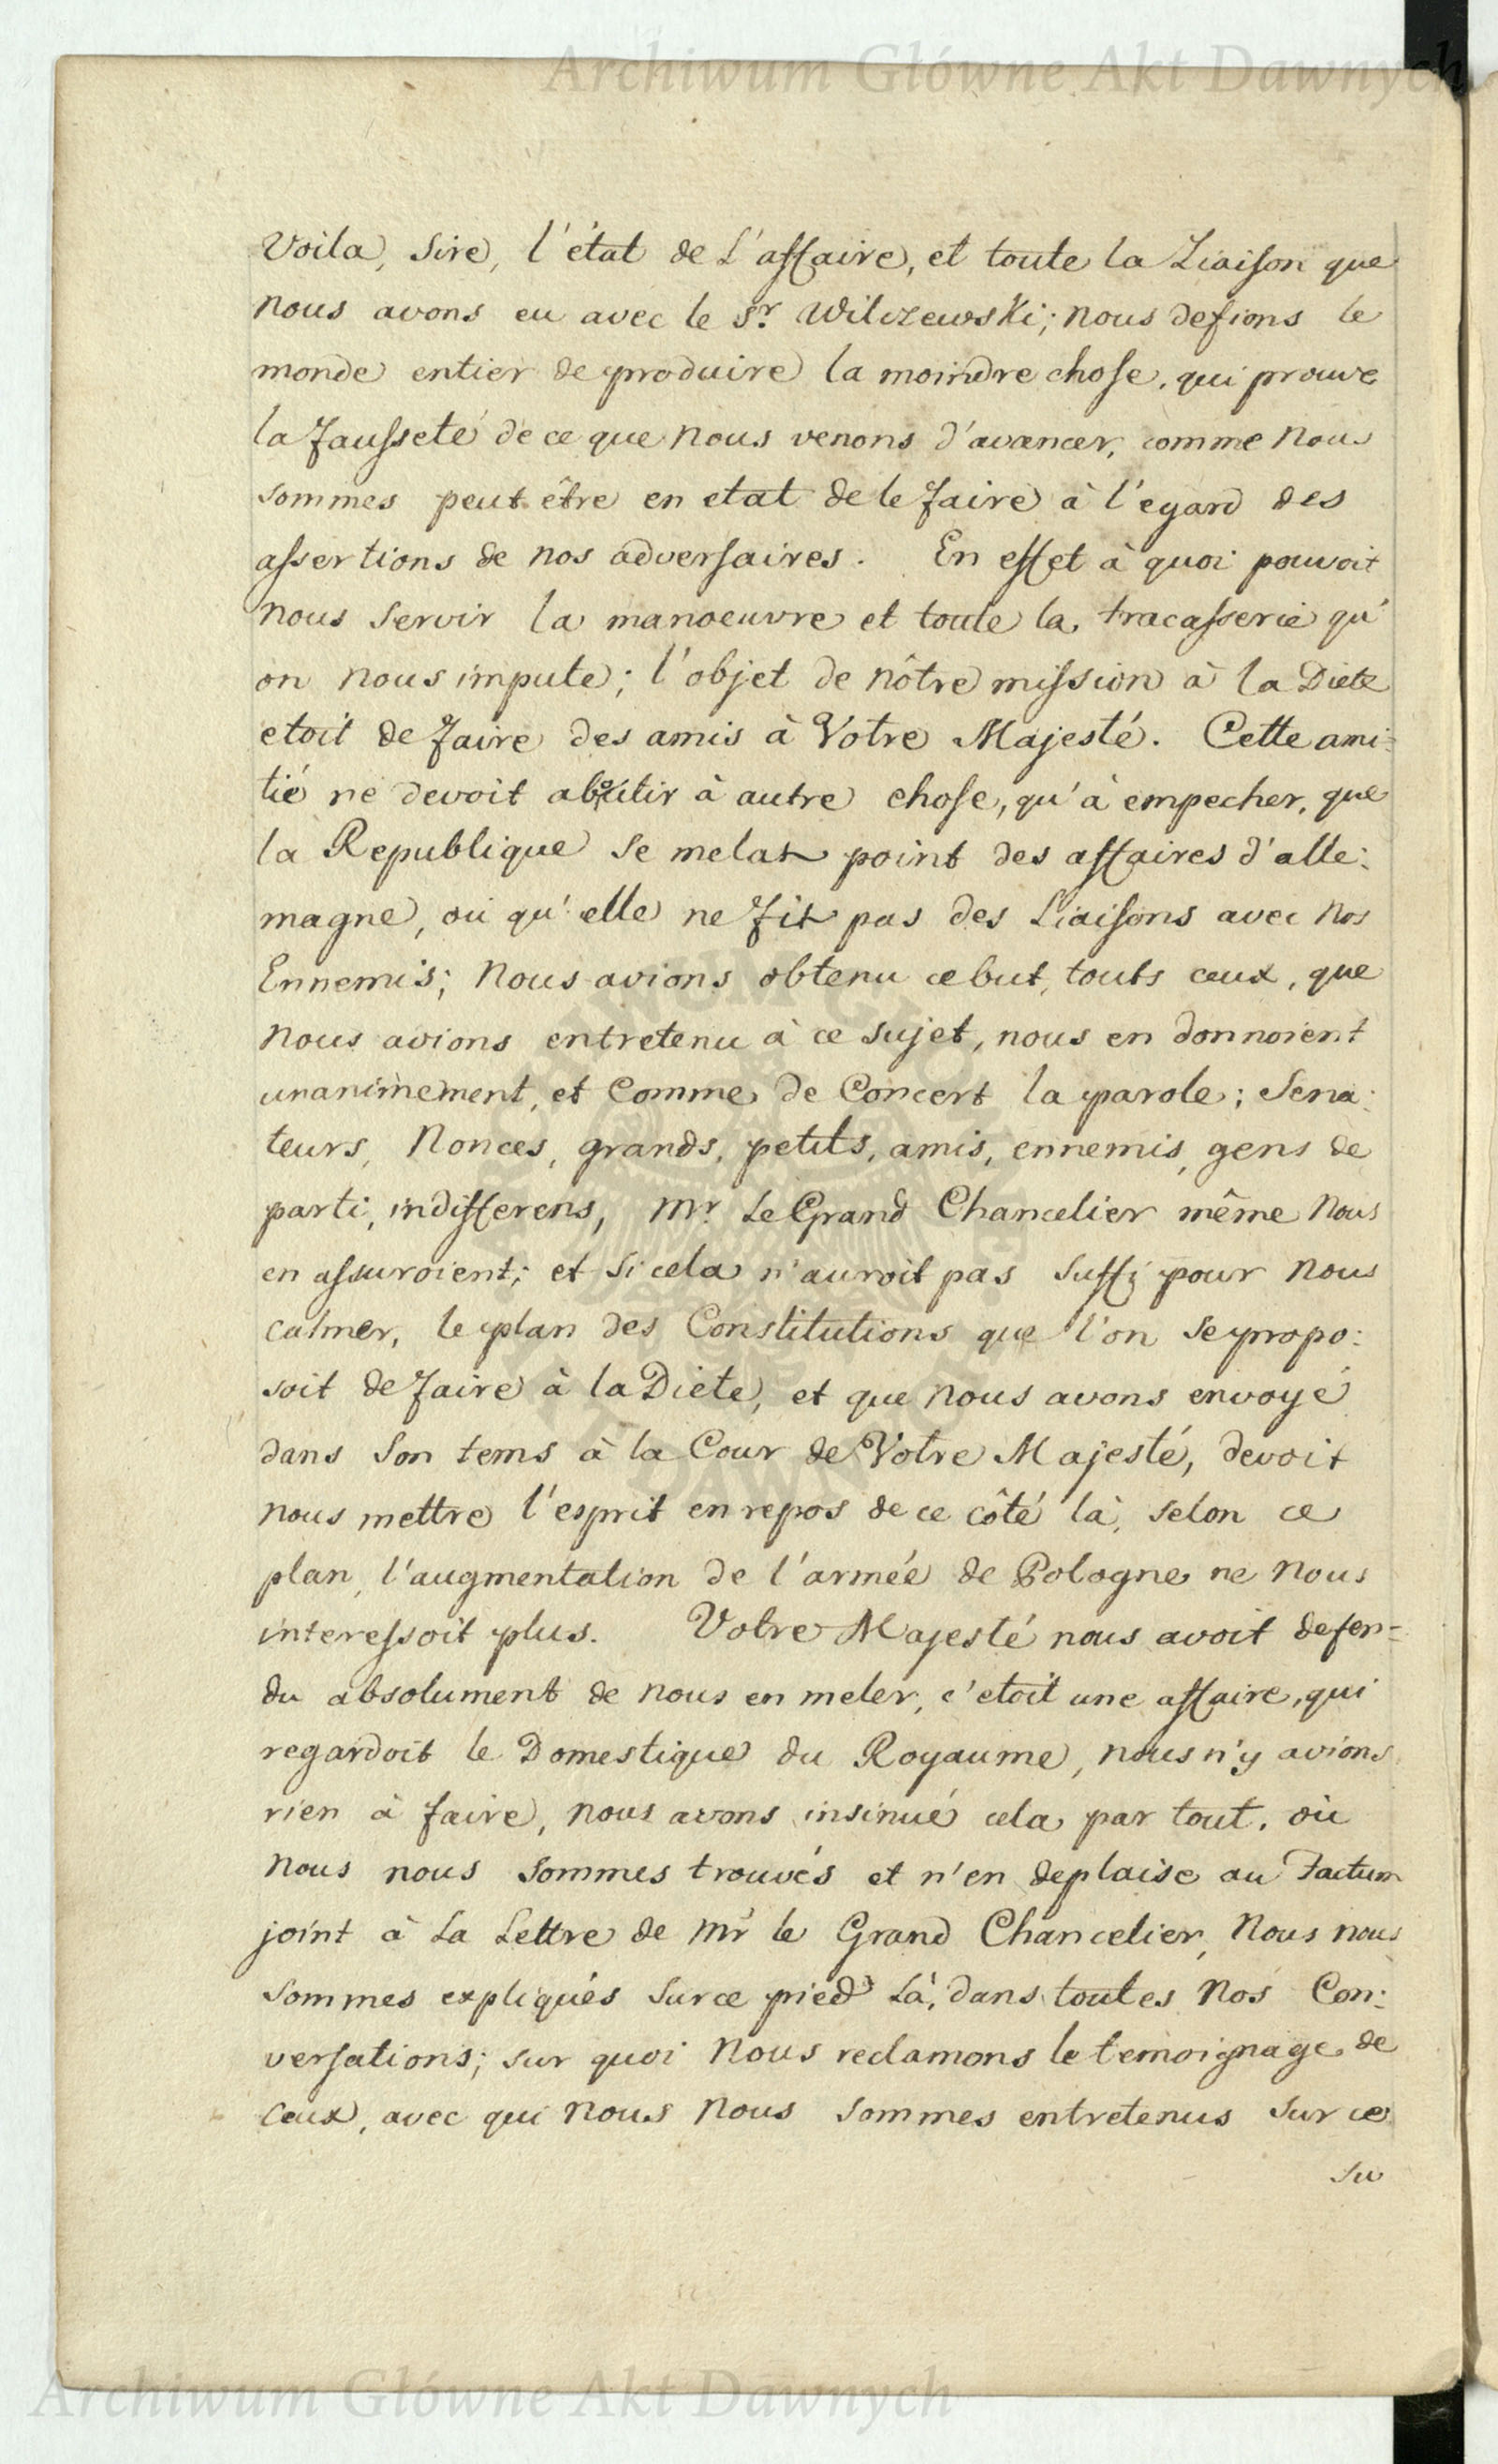 Archiwum Główne Akt Dawnych
Voila, Sire, l'état de L'affaire, et toute la Liaison que
nous avons eu avec le Sr. Wilczewski; nous defions le
monde entier de produire la moindre chose, qui prouve
la fausseté de ce que nous venons d'avancer, comme nous
sommes peut être en etat de le faire à l'egard des
assertions de nos adversaires. En effet à quoi pouvoit
nous servir la manoeuvre et toute la tracasserie qu'
on nous impute; l'objet de nôtre mission à la Diete
etoit de faire des amis à Votre Majesté. Cette ami=
tié ne devoit aboutir à autre chose, qu'à empecher, que
la Republique se melat point des affaires d'alle:
magne, ou qu'elle ne fit pas des Liaisons avec nos
Ennemis; Nous avions obtenu ce but, touts ceux, que
nous avions entretenu à ce sujet, nous en donnoient
unanimement, et comme de Concert la parole; Sena:
teurs, Nonces, grands, petits, amis, ennemis, gens de
parti, indifferens, Mr. Le Grand Chancelier même nous
en assuroient; et si cela n'auroit pas suffi pour nous
calmer, le plan des Constitutions que l'on se propo:
soit de faire à la Diete, et que nous avons envoyé
dans son tems à la Cour de Votre Majesté, devoit
nous mettre l'esprit en repos de ce côté là, selon ce
plan, l'augmentation de l'armée de Pologne ne nous
interessoit plus. Votre Majesté nous avoit defen=
du absolument de nous en meler, c'etoit une affaire, qui
regardoit le Domestique du Royaume, nous n'y avions
rien à faire, nous avons insinué cela par tout, où
nous nous sommes trouvés et n'en deplaise au Factum
joint à La Lettre de Mr le Grand Chancelier, Nous nous
sommes expliqués sur ce pied Là, dans toutes nos Con:
versations; sur quoi nous reclamons le temoignage de
ceux, avec qui nous nous sommes entretenus sur ce
su
Archiwum Główne Akt Dawnych